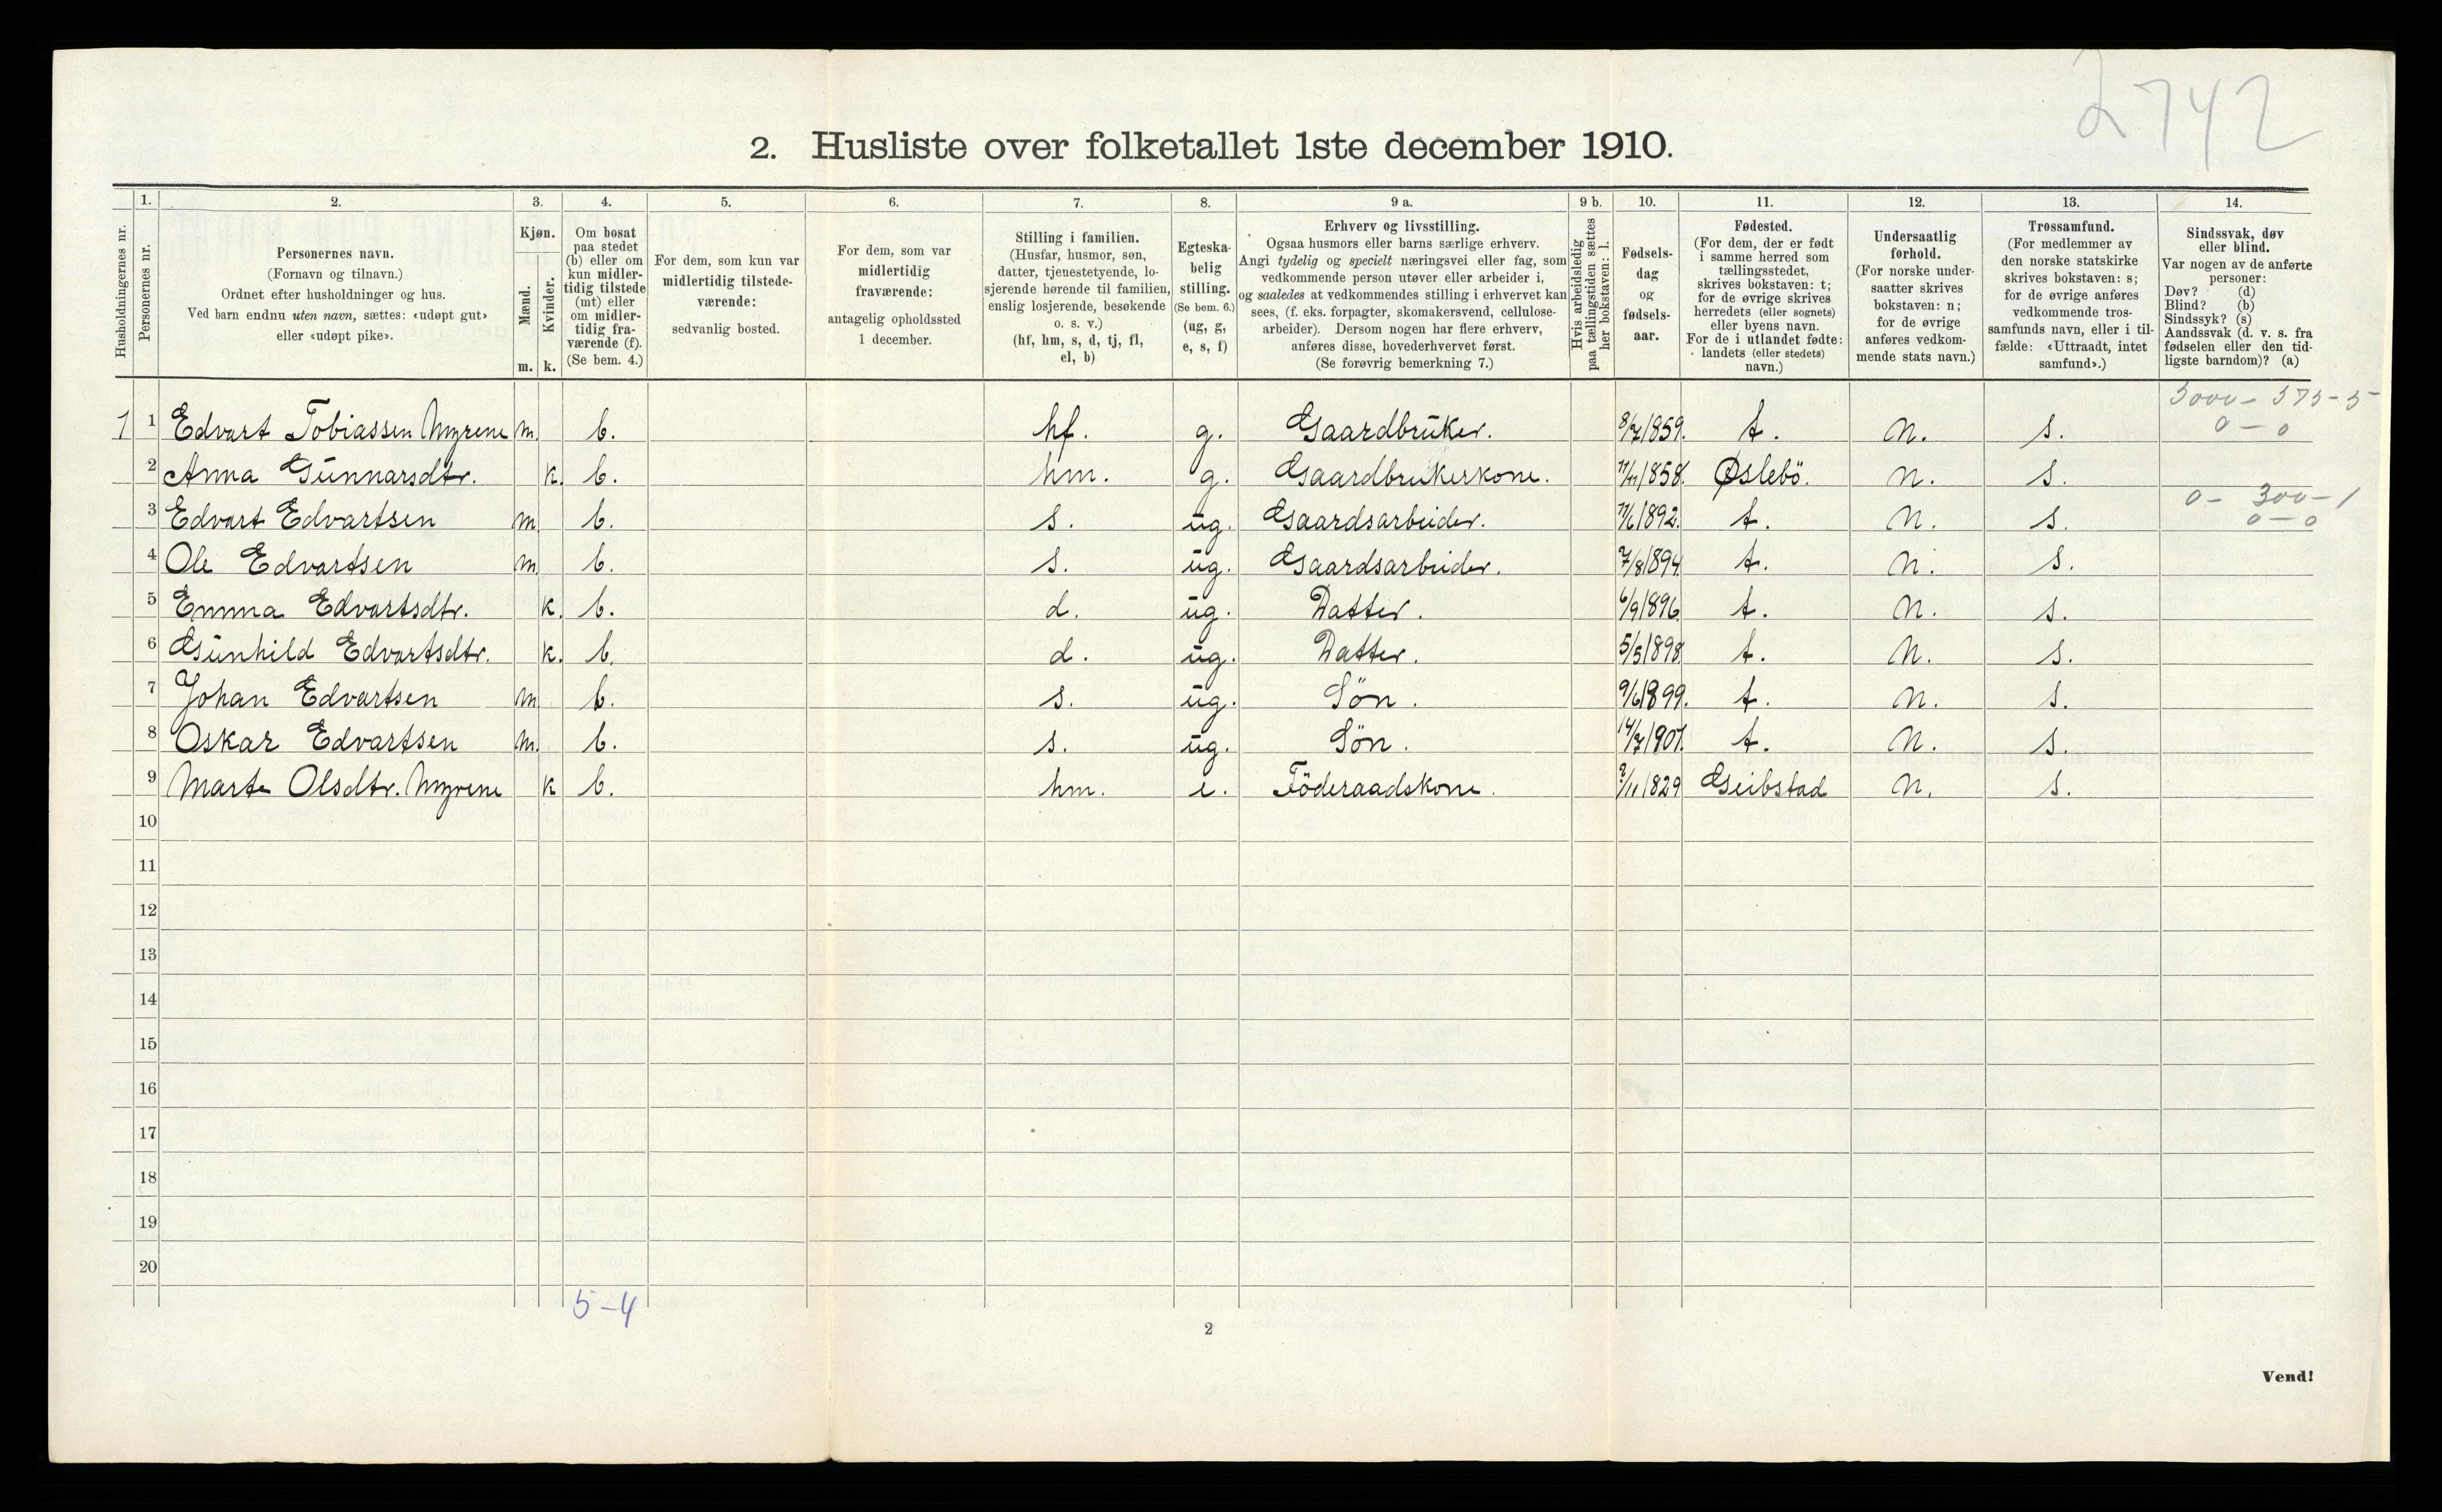 2742
2. Husliste over folketallet 1ste december 1910.
Husholdningernes nr.
1.
Personernes nr.
2.
Personernes navn.
(Fornavn og tilnavn.)
Ordnet efter husholdninger og hus.
Ved barn endnu uten navn, sættes: «udøpt gut»
eller «udøpt pike».
3.
Kjøn.
Mænd.
Kvinder.
m. k.
4.
Om bosat
paa stedet
(b) eller om
kun midler-
tidig tilstede
(mt) eller
om midler-
tidig fra-
værende (f).
(Se bem. 4.)
5.
For dem, som kun var
midlertidig tilstede-
værende:
sedvanlig bosted.
6.
For dem, som var
midlertidig
fraværende:
antagelig opholdssted
1 december.
7.
Stilling i familien.
(Husfar, husmor, søn,
datter, tjenestetyende, lo-
sjerende hørende til familien,
enslig losjerende, besøkende
o. s. v.)
(hf, hm, s, d, tj, fl,
el, b)
8.
Egteska-
belig
stilling.
(Se bem. 6.)
(ug, g,
e, s, f)
9 a.
Erhverv og livsstilling.
Ogsaa husmors eller barns særlige erhverv.
Angi tydelig og specielt næringsvei eller fag, som
vedkommende person utøver eller arbeider i,
og saaledes at vedkommendes stilling i erhvervet kan
sees, (f. eks. forpagter, skomakersvend, cellulose-
arbeider). Dersom nogen har flere erhverv,
anføres disse, hovederhvervet først.
(Se forøvrig bemerkning 7.)
9 b.
Hvis arbeidsledig
paa tællingstiden sættes
her bokstaven: l.
10.
Fødsels-
dag
og
fødsels-
aar.
11.
Fødested.
(For dem, der er født
i samme herred som
tællingsstedet,
skrives bokstaven: t;
for de øvrige skrives
herredets (eller sognets)
eller byens navn.
For de i utlandet fødte:
landets (eller stedets)
navn.)
12.
Undersaatlig
forhold.
(For norske under-
saatter skrives
bokstaven: n;
for de øvrige
anføres vedkom-
mende stats navn.)
13.
Trossamfund.
(For medlemmer av
den norske statskirke
skrives bokstaven: s;
for de øvrige anføres
vedkommende tros-
samfunds navn, eller i til-
fælde: «Uttraadt, intet
samfund».)
14.
Sindssvak, døv
eller blind.
Var nogen av de anførte
personer:
Døv? (d)
Blind? (b)
Sindssyk? (s)
Aandssvak (d. v. s. fra
fødselen eller den tid-
ligste barndom)? (a)
3000 - 575 - 5
1 1 Edvart Tobiassen Myrene m. b. hf. g. Gaardbruker. 8/7 1859. t. n. s. 0 - 0
2 Anna Gunnarsdtr. k. b. hm. g. Gaardbrukerkone. 11/11 1858. Øslebö. n. s.
0 - 300 - 1
3 Edvart Edvartsen m. b. s. ug. Gaardsarbeider. 11/6 1892. t. n. s. 0 - 0
4 Ole Edvartsen m. b. s. ug. Gaardsarbeider. 7/8 1894. t. n. s.
5 Emma Edvartsdtr. k. b. d. ug. Datter. 6/9 1896. t. n. s.
6 Gunhild Edvartsdtr. k. b. d. ug. Datter. 5/5 1898. t. n. s.
7 Johan Edvartsen m. b. s. ug. Sön. 9/6 1899. t. n. s.
8 Oskar Edvartsen m. b. s. ug. Sön. 14/7 1901. t. n. s.
9 Marte Olsdtr. Myrene k b. hm. e. Föderaadskone. /11 1829 Geibstad n. s.
10
11
12
13
14
15
16
17
18
19
20
5-4
2
Vend!